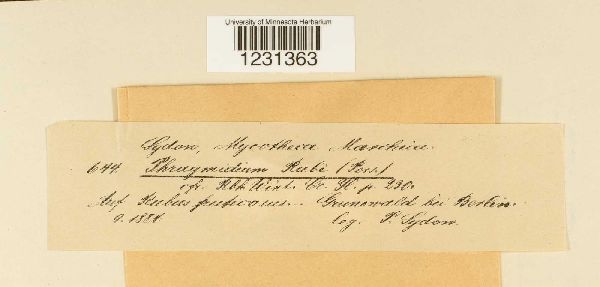 University of Minnesota Herbarium
1231363
Sydow, Mycotheca Marchica.
644. Phragmidium Rubi (Pers.)
cfr. Rbh. Wint. Cr. Fl. p. 230.
Auf Rubus fruticosus. Grunewald bei Berlin.
9. 1884 leg. P. Sydow.